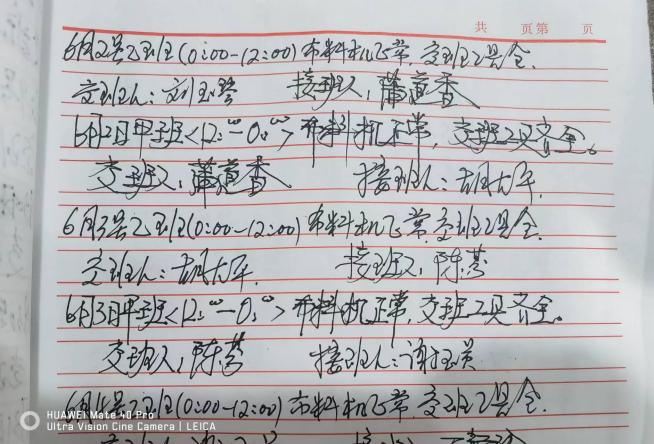 共 页第 页
6月2号乙班(0:00-12:00)布料机正常,交班工具全.
交班人:刘玉 接班人:蒲道香
6月2日甲班<12:00-0:00>布料机正常,交班工具齐全。
交班人:蒲道香 接班人:胡大军.
6月3号乙班(0:00-12:00)布料机正常,交班工具全.
交班人:胡大军. 接班人:陈
6月3日甲班<12:00-0:00>布料机正常,交班工具齐全。
交班人:陈 接班人:谢
6月4号乙班(0:00-12:00)布料机正常,交班工具全.
HUAWEI Mate 40 Pro
Ultra Vision Cine Camera | LEICA